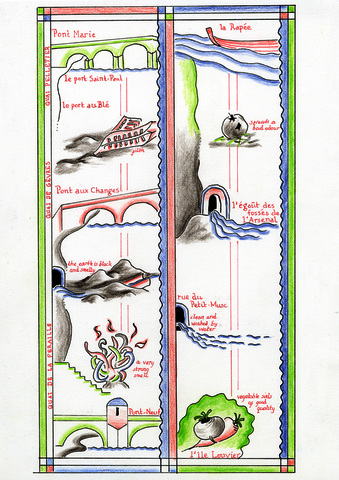 Pont Marie
le port Saint-Paul
le port au Blé
Pont aux Changes
the earth is black
and smelly
a very
strong
smell
Pont-Neuf
QUAI DE GÈVRES
la Rapée
spreads a
bad odour
l'égoût des
fossés de
l'Arsenal
rue du
Petit-Musc
clean and
washed by
water
vegetable soils
of good
quality
l'Ile Louvier